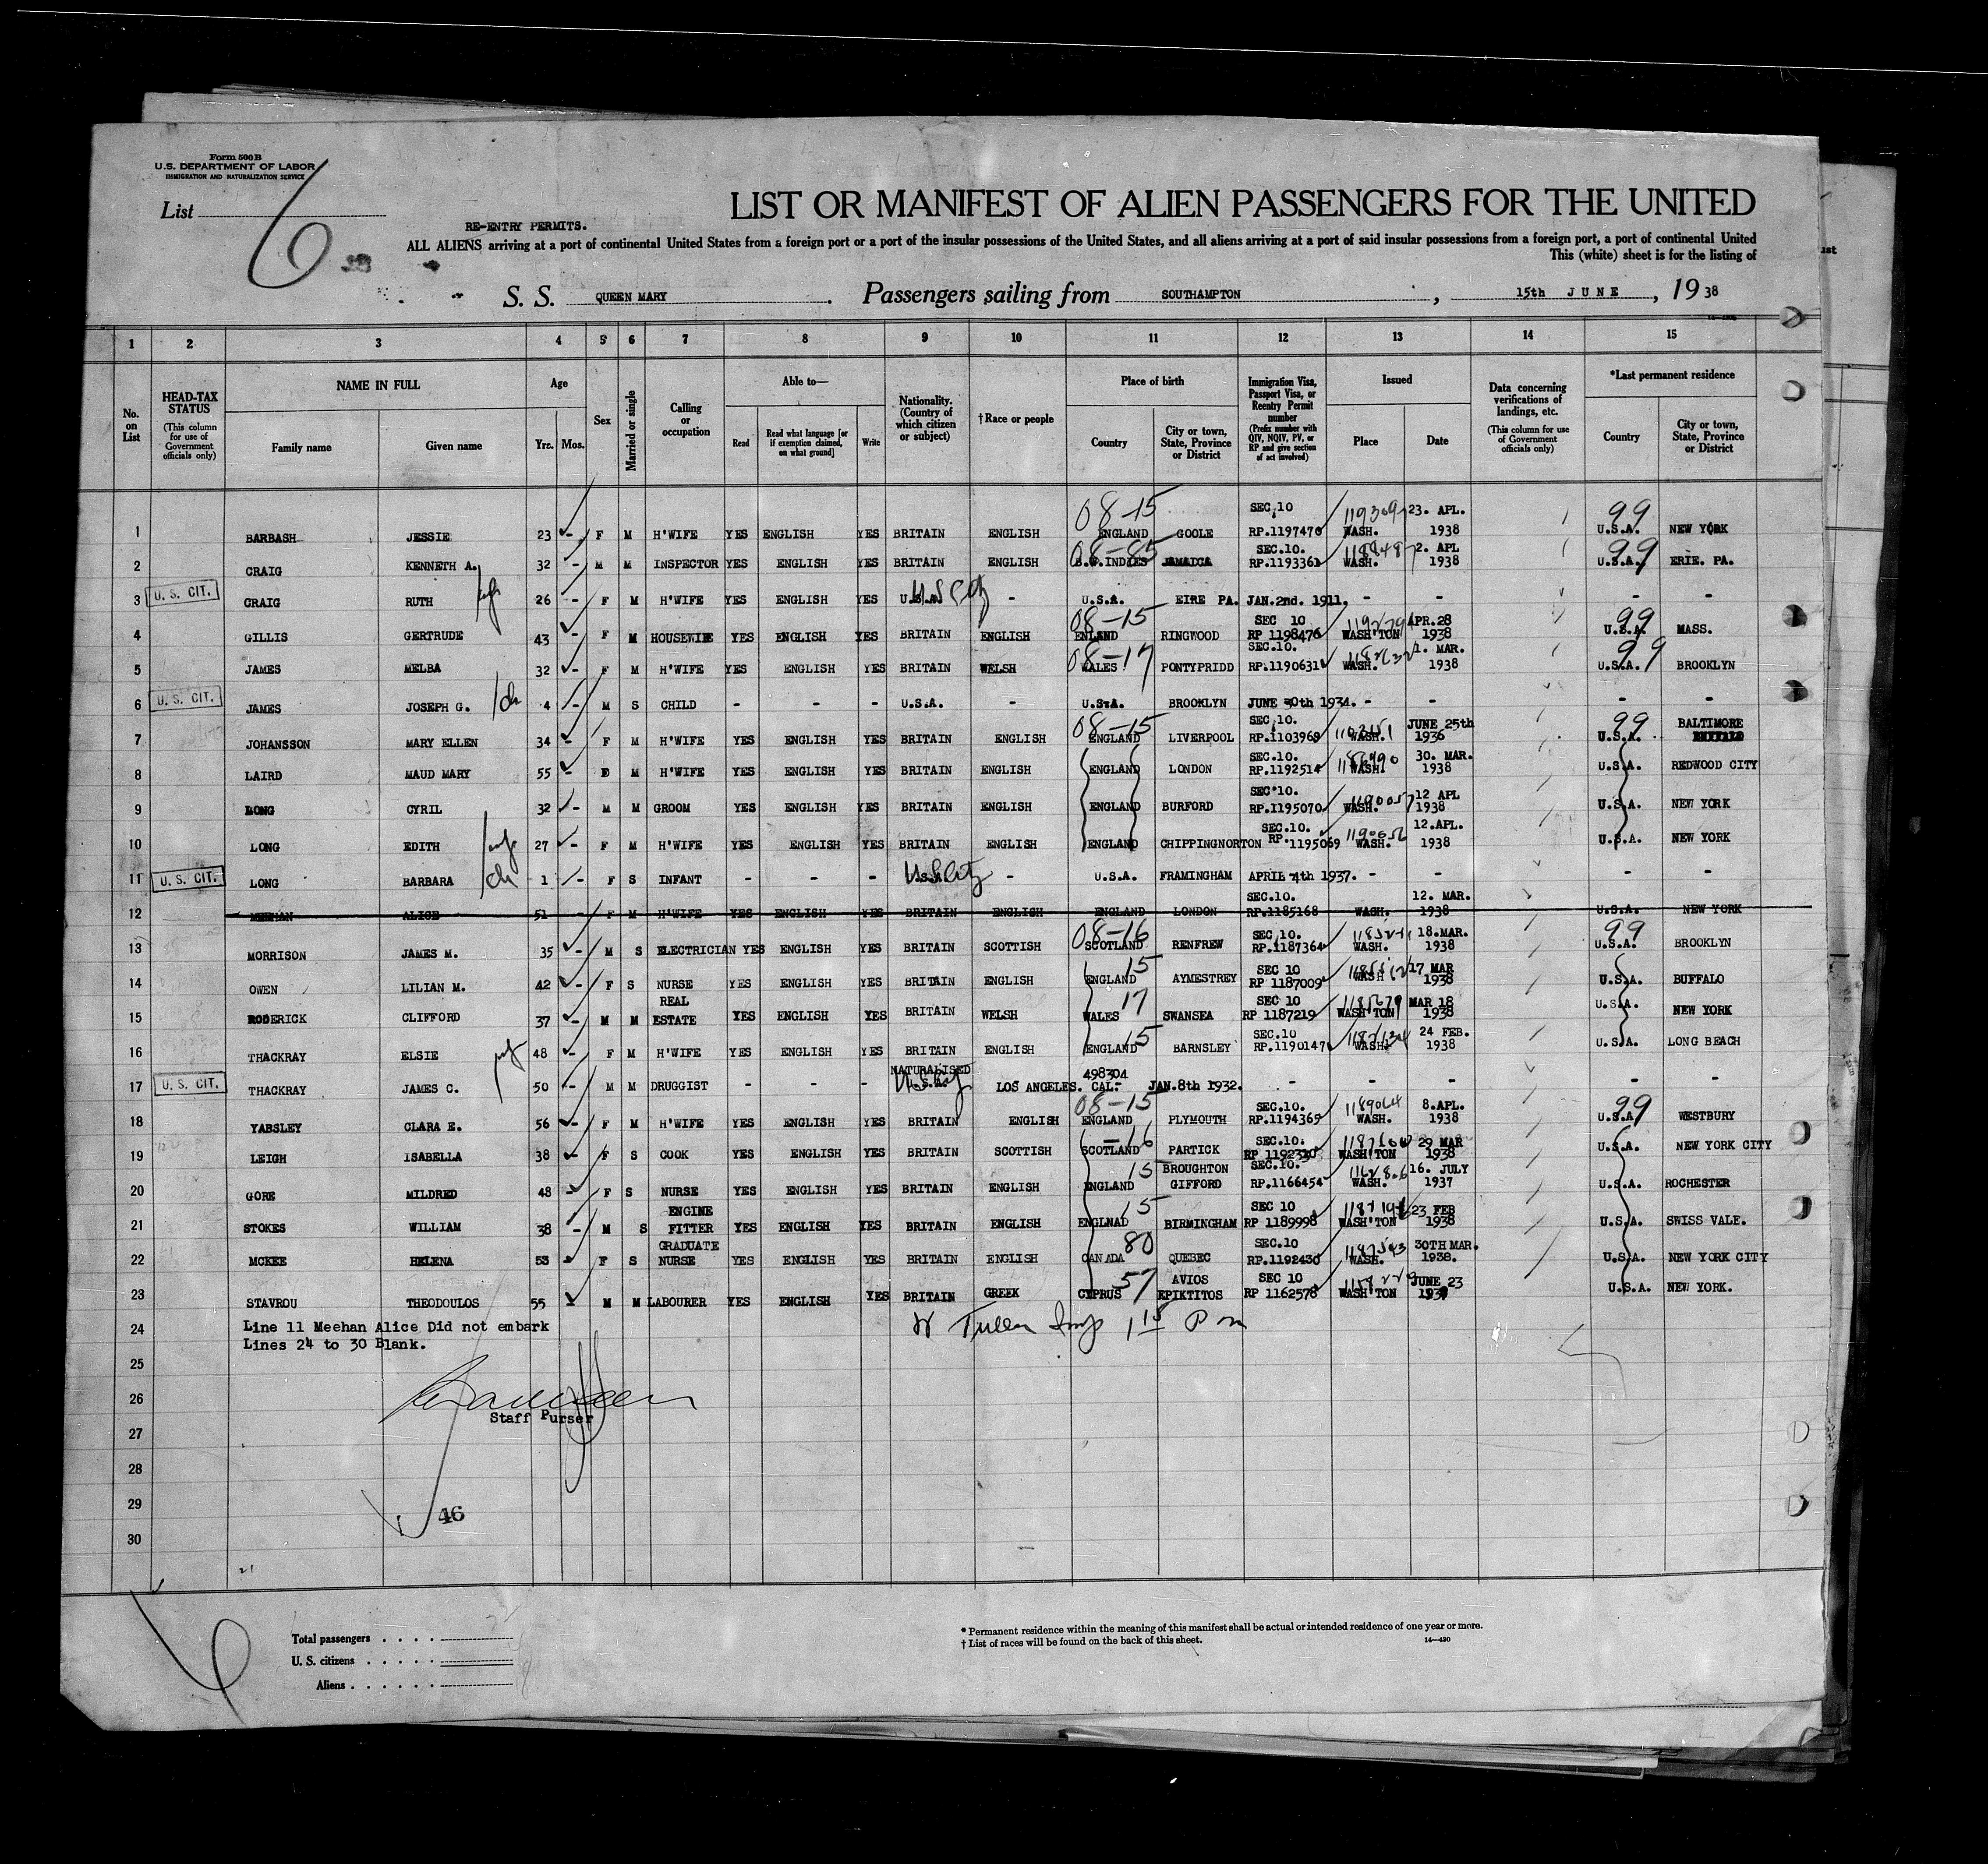 Form 500B
U.S. DEPARTMENT OF LABOR
IMMIGRATION AND NATURALIZATION SERVICE
List 6
LIST OR MANIFEST OF ALIEN PASSENGERS FOR THE UNITED
RE-ENTRY PERMITS.
ALL ALIENS arriving at a port of continental United States from a foreign port or a port of the insular possessions of the United States, and all aliens arriving at a port of said insular possessions from a foreign port, a port of continental United
This (white) sheet is for the listing of
S. S. QUEEN MARY. Passengers sailing from SOUTHAMPTON, 15th JUNE, 1938
1 2 3 4 5 6 7 8 9 10 11 12 13 14 15
No. on List
HEAD-TAX STATUS (This column for use of Government officials only)
NAME IN FULL
Family name Given name
Age
Yrs. Mos.
Sex
Married or single
Calling or occupation
Able to—
Read
Read what language [or if exemption claimed, on what ground]
Write
Nationality. (Country of which citizen or subject)
†Race or people
Place of birth
Country
City or town, State, Province or District
Immigration Visa, Passport Visa, or Reentry Permit number (Prefix number with QIV, NQIV, PV, or RP and give section of act involved)
Issued
Place Date
Data concerning verifications of landings, etc. (This column for use of Government officials only)
*Last permanent residence
Country
City or town, State, Province or District
08-15 SEC.10 23. APL. 99
1 BARBASH JESSIE 23 - F M H'WIFE YES ENGLISH YES BRITAIN ENGLISH ENGLAND GOOLE RP.1197470 WASH. 1938 U.S.A. NEW YORK
08-85 SEC.10. 2. APL 99
2 CRAIG KENNETH A. 32 - M M INSPECTOR YES ENGLISH YES BRITAIN ENGLISH B.W.INDIES JAMAICA RP.1193362 WASH. 1938 U.S.A. ERIE. PA.
3 U. S. CIT. CRAIG RUTH 26 - F M H'WIFE YES ENGLISH YES U.S.A. - U.S.A. EIRE PA. JAN.2nd. 1911. - - - -
08-15 SEC 10 APR.28 99
4 GILLIS GERTRUDE 43 - F M HOUSEWIFE YES ENGLISH YES BRITAIN ENGLISH ENLAND RINGWOOD RP 1198476 WASH'TON 1938 U.S.A. MASS.
08-17 SEC.10. 1. MAR. 99
5 JAMES MELBA 32 - F M H'WIFE YES ENGLISH YES BRITAIN WELSH WALES PONTYPRIDD RP.1190631 WASH. 1938 U.S.A. BROOKLYN
6 U. S. CIT. JAMES JOSEPH G. ch 4 - M S CHILD - - - U.S.A. - U.S.A. BROOKLYN JUNE 30th 1934. - - - -
08-15 SEC.10. JUNE 25th 99 BALTIMORE
7 JOHANSSON MARY ELLEN 34 - F M H'WIFE YES ENGLISH YES BRITAIN ENGLISH ENGLAND LIVERPOOL RP.1103969 WASH. 1936 U.S.A. BUFFALO
SEC.10. 30. MAR.
8 LAIRD MAUD MARY 55 - M H'WIFE YES ENGLISH YES BRITAIN ENGLISH ENGLAND LONDON RP.1192514 WASH. 1938 U.S.A. REDWOOD CITY
SEC.10. 12 APL
9 LONG CYRIL 32 - M M GROOM YES ENGLISH YES BRITAIN ENGLISH ENGLAND BURFORD RP.1195070 WASH. 1938 U.S.A. NEW YORK
SEC.10. 12.APL.
10 LONG EDITH 27 - F M H'WIFE YES ENGLISH YES BRITAIN ENGLISH ENGLAND CHIPPINGNORTON RP.1195069 WASH. 1938 U.S.A. NEW YORK
11 U. S. CIT. LONG BARBARA ch 1 - F S INFANT - - - U.S.A. - U.S.A. FRAMINGHAM APRIL 4th 1937. - - - -
SEC.10. 12. MAR.
12 MEEHAN ALICE 51 - F M H'WIFE YES ENGLISH YES BRITAIN ENGLISH ENGLAND LONDON RP.1185168 WASH. 1938 U.S.A. NEW YORK
08-16 SEC.10. 18.MAR. 99
13 MORRISON JAMES M. 35 - M S ELECTRICIAN YES ENGLISH YES BRITAIN SCOTTISH SCOTLAND RENFREW RP.1187364 WASH. 1938 U.S.A. BROOKLYN
15 SEC 10 17 MAR
14 OWEN LILIAN M. 42 - F S NURSE YES ENGLISH YES BRITAIN ENGLISH ENGLAND AYMESTREY RP 1187009 WASH 1938 U.S.A. BUFFALO
REAL 17 SEC 10 MAR 18
15 RODERICK CLIFFORD 37 - M M ESTATE YES ENGLISH YES BRITAIN WELSH WALES SWANSEA RP 1187219 WASH'TON 1938 U.S.A. NEW YORK
15 SEC.10 24 FEB.
16 THACKRAY ELSIE 48 - F M H'WIFE YES ENGLISH YES BRITAIN ENGLISH ENGLAND BARNSLEY RP.1190147 WASH. 1938 U.S.A. LONG BEACH
NATURALISED 498304
17 U. S. CIT. THACKRAY JAMES C. 50 - M M DRUGGIST - - - LOS ANGELES. CAL.- JAN.8th 1932. - - - - -
08-15 SEC.10. 8.APL. 99
18 YABSLEY CLARA E. 56 - F M H'WIFE YES ENGLISH YES BRITAIN ENGLISH ENGLAND PLYMOUTH RP.1194365 WASH. 1938 U.S.A. WESTBURY
-16 SEC.10. 29 MAR
19 LEIGH ISABELLA 38 - F S COOK YES ENGLISH YES BRITAIN SCOTTISH SCOTLAND PARTICK RP 1192330 WASH'TON 1938 U.S.A. NEW YORK CITY
15 BROUGHTON SEC.10. 16. JULY
20 GORE MILDRED 48 - F S NURSE YES ENGLISH YES BRITAIN ENGLISH ENGLAND GIFFORD RP.1166454 WASH. 1937 U.S.A. ROCHESTER
ENGINE 15 SEC 10 23 FEB
21 STOKES WILLIAM 38 - M S FITTER YES ENGLISH YES BRITAIN ENGLISH ENGLNAD BIRMINGHAM RP 1189998 WASH'TON 1938 U.S.A. SWISS VALE.
GRADUATE 80 SEC.10 30TH MAR.
22 MCKEE HELENA 53 - F S NURSE YES ENGLISH YES BRITAIN ENGLISH CANADA QUEBEC RP.1192430 WASH. 1938. U.S.A. NEW YORK CITY
57 AVIOS SEC 10 JUNE 23
23 STAVROU THEODOULOS 55 - M M LABOURER YES ENGLISH YES BRITAIN GREEK CYPRUS EPIKTITOS RP 1162578 WASH'TON 1937 U.S.A. NEW YORK.
24 Line 11 Meehan Alice Did not embark
Lines 24 to 30 Blank.
25
26
Staff Purser
27
28
29
46
30
Total passengers
U. S. citizens
Aliens
* Permanent residence within the meaning of this manifest shall be actual or intended residence of one year or more.
† List of races will be found on the back of this sheet.
14—430